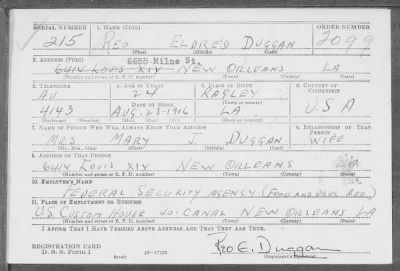 SERIAL NUMBER 1. NAME (Print) ORDER NUMBER
215 REO ELDRED DUGGAN 2099
(First) (Middle) (Last)
2. ADDRESS (Print) 6655 Milne St.
6414 LOUIS XIV NEW ORLEANS LA
(Number and street or R. F. D. number) (Town) (County) (State)
3. TELEPHONE 4. AGE IN YEARS 5. PLACE OF BIRTH 6. COUNTRY OF CITIZENSHIP
AU 24 RAGLEY
DATE OF BIRTH (Town or county)
4143 AUG. 23-1916 LA U.S.A
(Exchange) (Number) (Mo.) (Day) (Yr.) (State or country)
7. NAME OF PERSON WHO WILL ALWAYS KNOW YOUR ADDRESS 8. RELATIONSHIP OF THAT PERSON
MRS MARY J. DUGGAN WIFE
(Mr., Mrs., Miss) (First) (Middle) (Last)
9. ADDRESS OF THAT PERSON
6414 LOUIS XIV NEW ORLEANS
(Number and street or R. F. D. number) (Town) (County) (State)
10. EMPLOYER'S NAME
FEDERAL SECURITY AGENCY (FOOD AND DRUG ADM.)
11. PLACE OF EMPLOYMENT OR BUSINESS
U.S. CUSTOM HOUSE CANAL NEW ORLEANS LA
(Number and street or R. F. D. number) (Town) (County) (State)
I AFFIRM THAT I HAVE VERIFIED ABOVE ANSWERS AND THAT THEY ARE TRUE.
REGISTRATION CARD Reo E. Duggan
D. S. S. Form 1 (Registrant's signature)